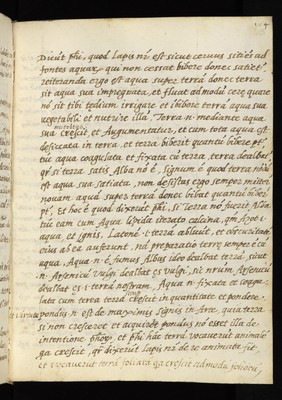 Dicūt phi, quod Lapis nr̄ est sicut cervus sitiēs ad
fontes aquar, qui non cessat bibere donec satiet,
reiteranda ergo est aqua super terrā donec terra
sit aqua sua impregnata, et fluat ad modū cere quare
nō sit tibi tedium irrigare et inbibere terrā aqua sua
vegetabili et nutrire illā, Terra n. mediante aqua
sua crescit et Augumentatur, et cum tota aqua est
desiccata in terra, et terra biberit quantū bibere pt,
tūc aqua coagulata et fixata cū terra, terra dealbat,
qr si terra satis Alba nō ē, signum ē quod terra nōdū
est aqua sua satiata, non desistas ergo semper mittere
novam aquā super terrā donec bibat quantū bibere
pt, Et hoc ē quod dixerūt phi, si Terra nō fuerit Alba
tūc eam cum Aqua lipida iterato calcina, qm̄ Azoc .i.
aqua et ignis, Latenē .i. terrā abluūt, et obscuritatē
eius ab ea auferunt, nā preparatio terre semper ē cū
aqua, Aqua n. ē fumus Albus ideo dealbat terrā, sicut
n. Arsenicū vulgi dealbat es vulgi, ita nrum Arsenicū
dealbat es .i. terrā nostram, Aqua n. fixata et coagu-
lata cum terra terrā crescit in quantitate et pondere
pondus n. est de maximis signis in Arte, quia terra
si non cresceret et acquireret pondus nō esset illa de
intentione phor, et phi hāc terrā vocaverūt animalē
qa crescit, qr dixerūt Lapis nr̄ de re animata fit
et vocaverūt terrā foliatā qa crescit ad modū foliorū